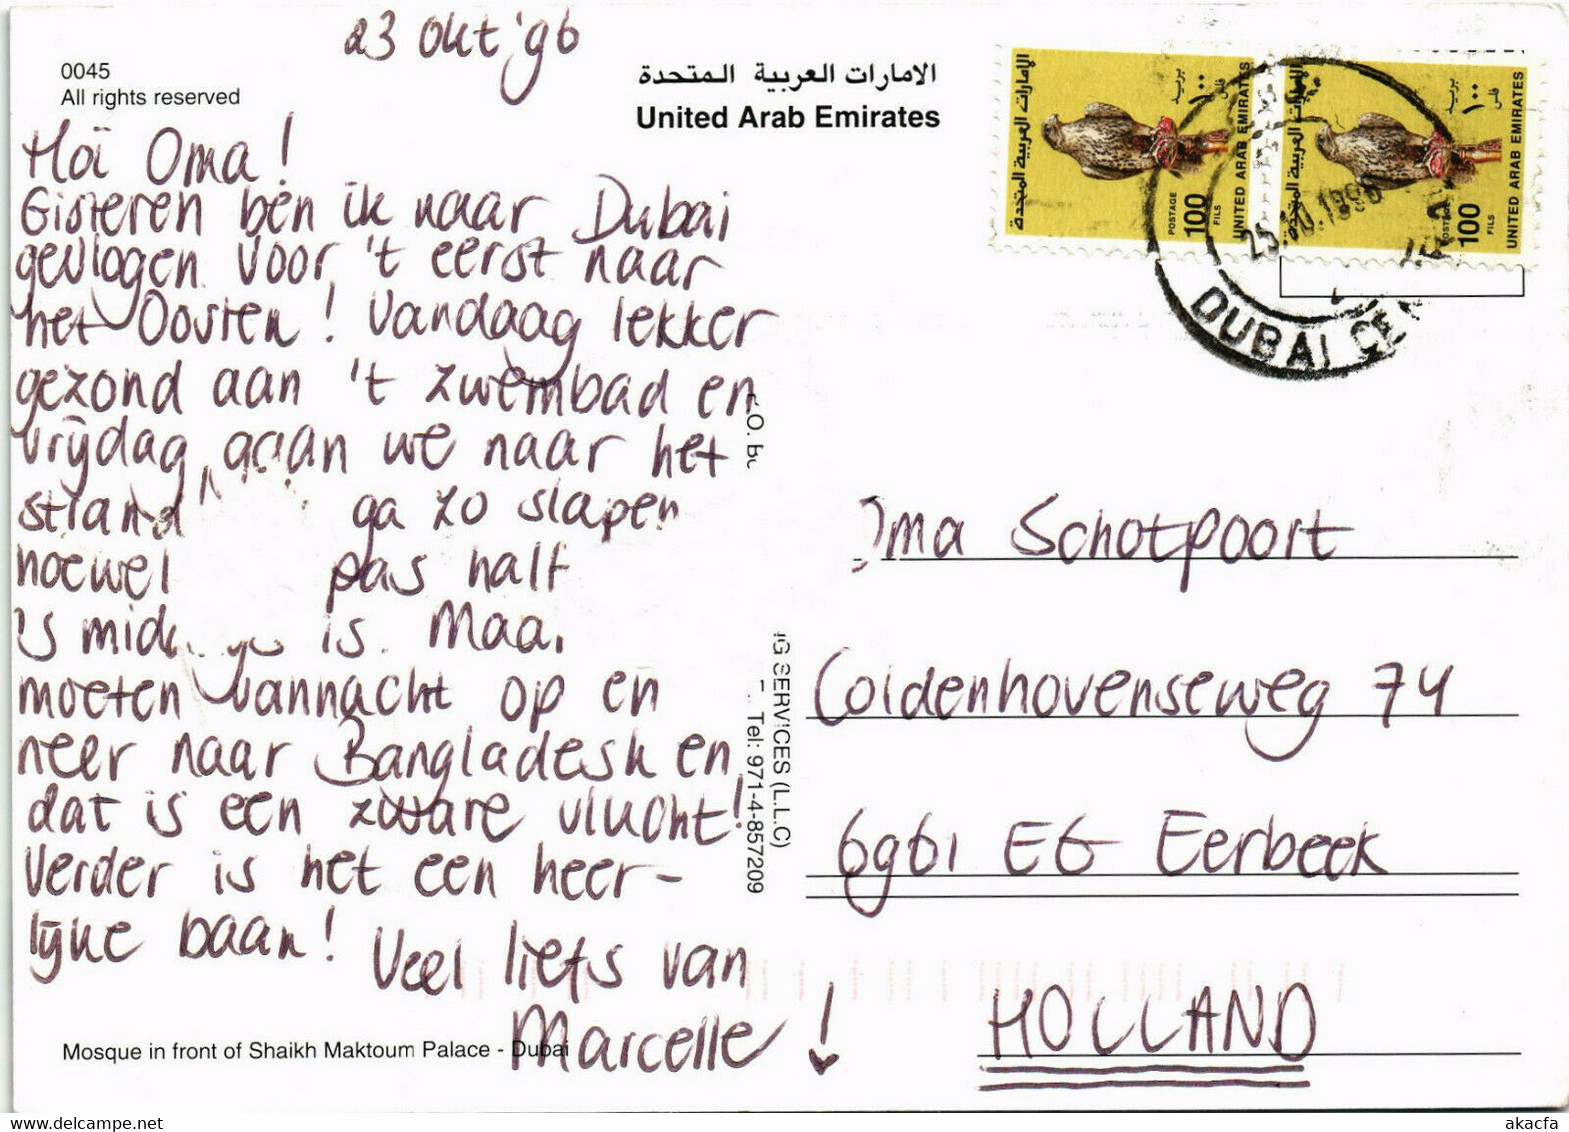 23 Okt '96
0045
All rights reserved
الامارات العربية المتحدة
United Arab Emirates
Hoi Oma!
Gisteren ben ik naar Dubai
gevlogen voor 't eerst naar
het Oosten! Vandaag lekker
gezond aan 't zwembad en
vrijdag gaan we naar het
strand ga zo slapen
hoewel pas half
is. Maar
moeten vannacht op en
neer naar Bangladesh en
dat is een zware vlucht!
Verder is het een heer-
lijke baan! Veel liefs van
Marcelle!
Mosque in front of Shaikh Maktoum Palace - Dubai
SERVICES (L.L.C)
Tel: 971-4-857209
الامارات العربية المتحدة
بريد ١٠٠ فلس
POSTAGE 100 FILS
UNITED ARAB EMIRATES
الامارات العربية المتحدة
بريد ١٠٠ فلس
POSTAGE 100 FILS
UNITED ARAB EMIRATES
1996
DUBAI
Oma Schotpoort
Coldenhovenseweg 74
6961 EG Eerbeek
HOLLAND
akacfa